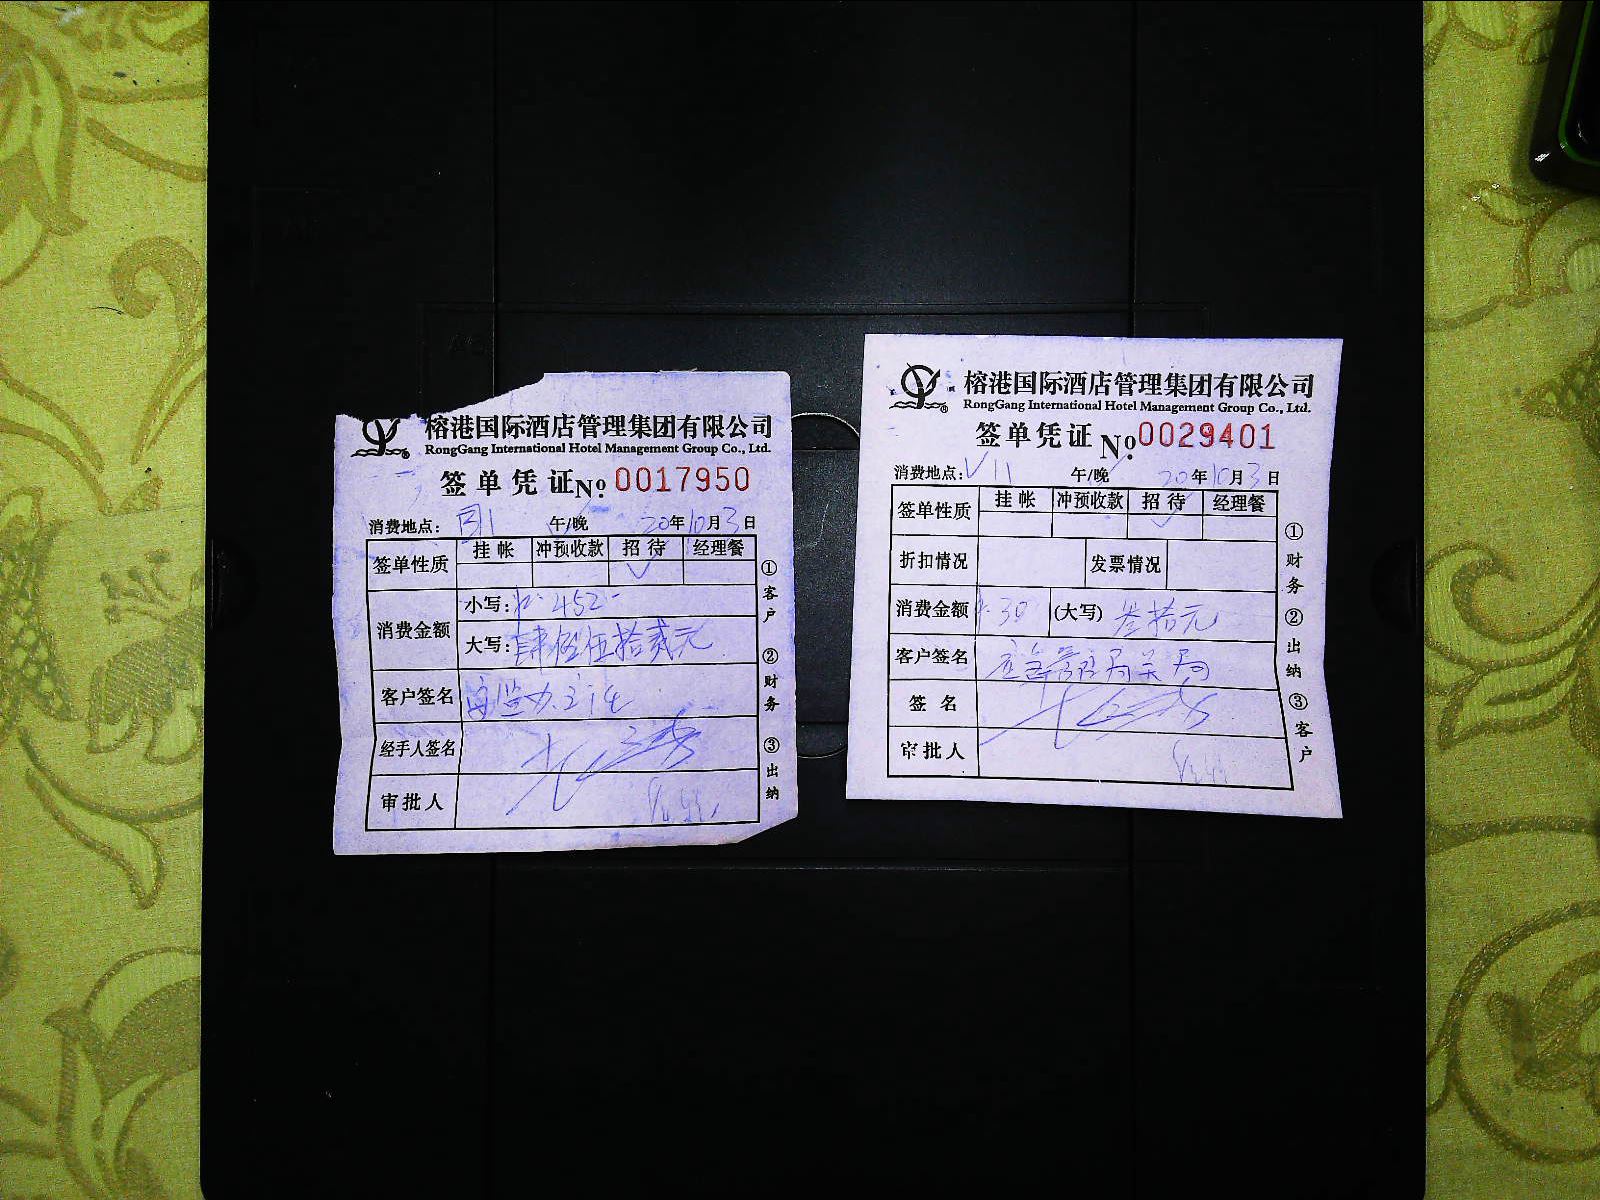 榕港国际酒店管理集团有限公司
RongGang International Hotel Management Group Co., Ltd.
签单凭证 No. 0017950
消费地点: 午/晚 20年10月3日
签单性质 挂帐 冲预收款 招待 经理餐
✓
消费金额 小写: 452-
大写: 肆佰伍拾贰元
客户签名
经手人签名
审批人
① 客户 ② 财务 ③ 出纳
榕港国际酒店管理集团有限公司
RongGang International Hotel Management Group Co., Ltd.
签单凭证 No. 0029401
消费地点: V11 午/晚 20年10月3日
签单性质 挂帐 冲预收款 招待 经理餐
✓
折扣情况 发票情况
消费金额 30 (大写) 叁拾元
客户签名
签名
审批人
① 财务 ② 出纳 ③ 客户